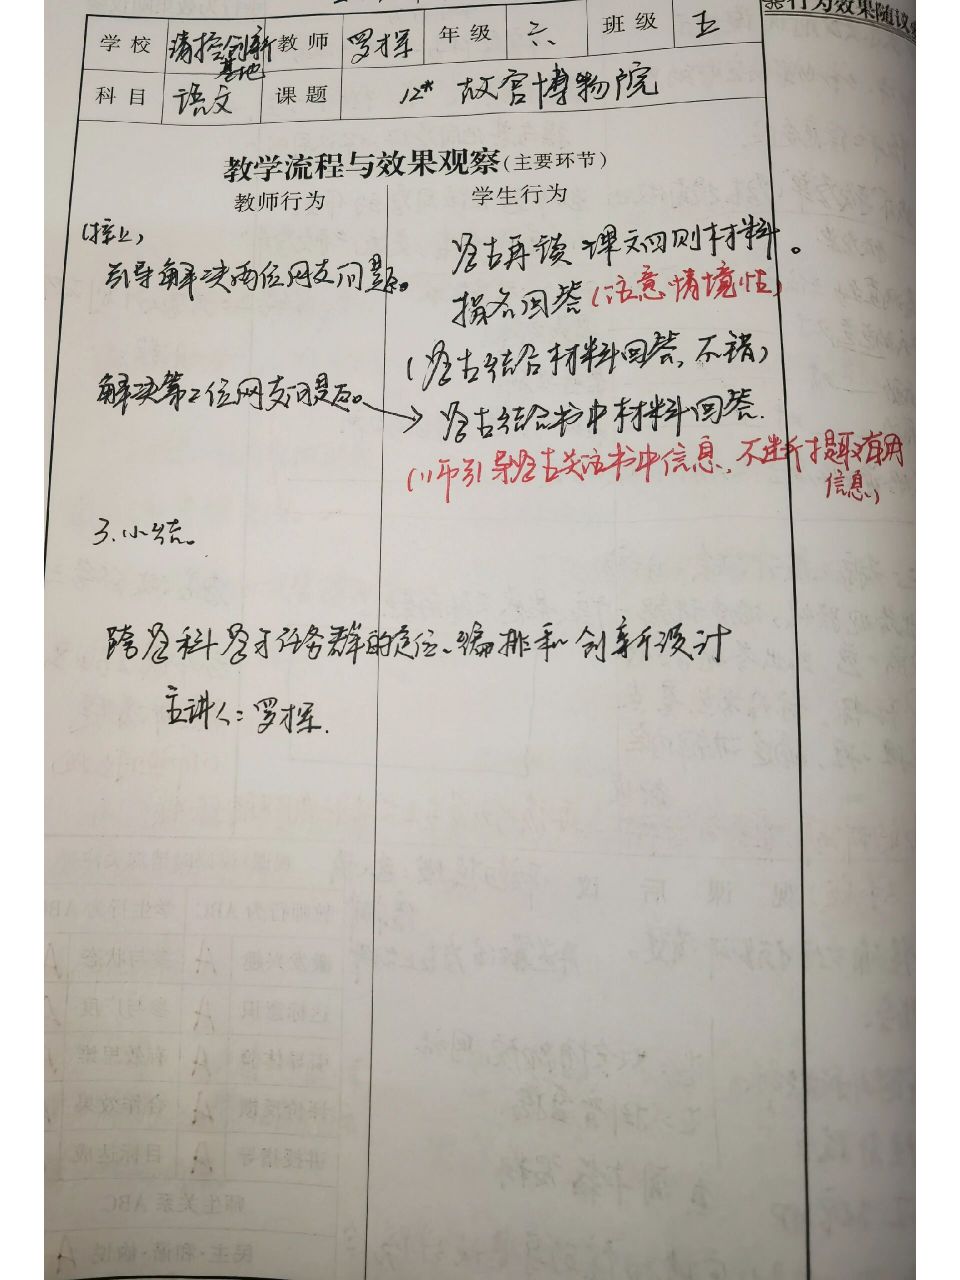 行为效果随议
学校 清控创新基地 教师 罗探 年级 六 班级 五
科目 语文 课题 12* 故宫博物院
教学流程与效果观察(主要环节)
教师行为 学生行为
(接上)
学生再读课文四则材料。
引导解决两位网友问题。
指名回答(注意情境性)
(学生结合材料回答,不错)
解决第2位网友问题。→学生结合书中材料回答.
(师引导学生关注书中信息,不断提取有用
信息)
3.小结。
跨学科学习任务群的定位、编排和创新设计
主讲人:罗探.